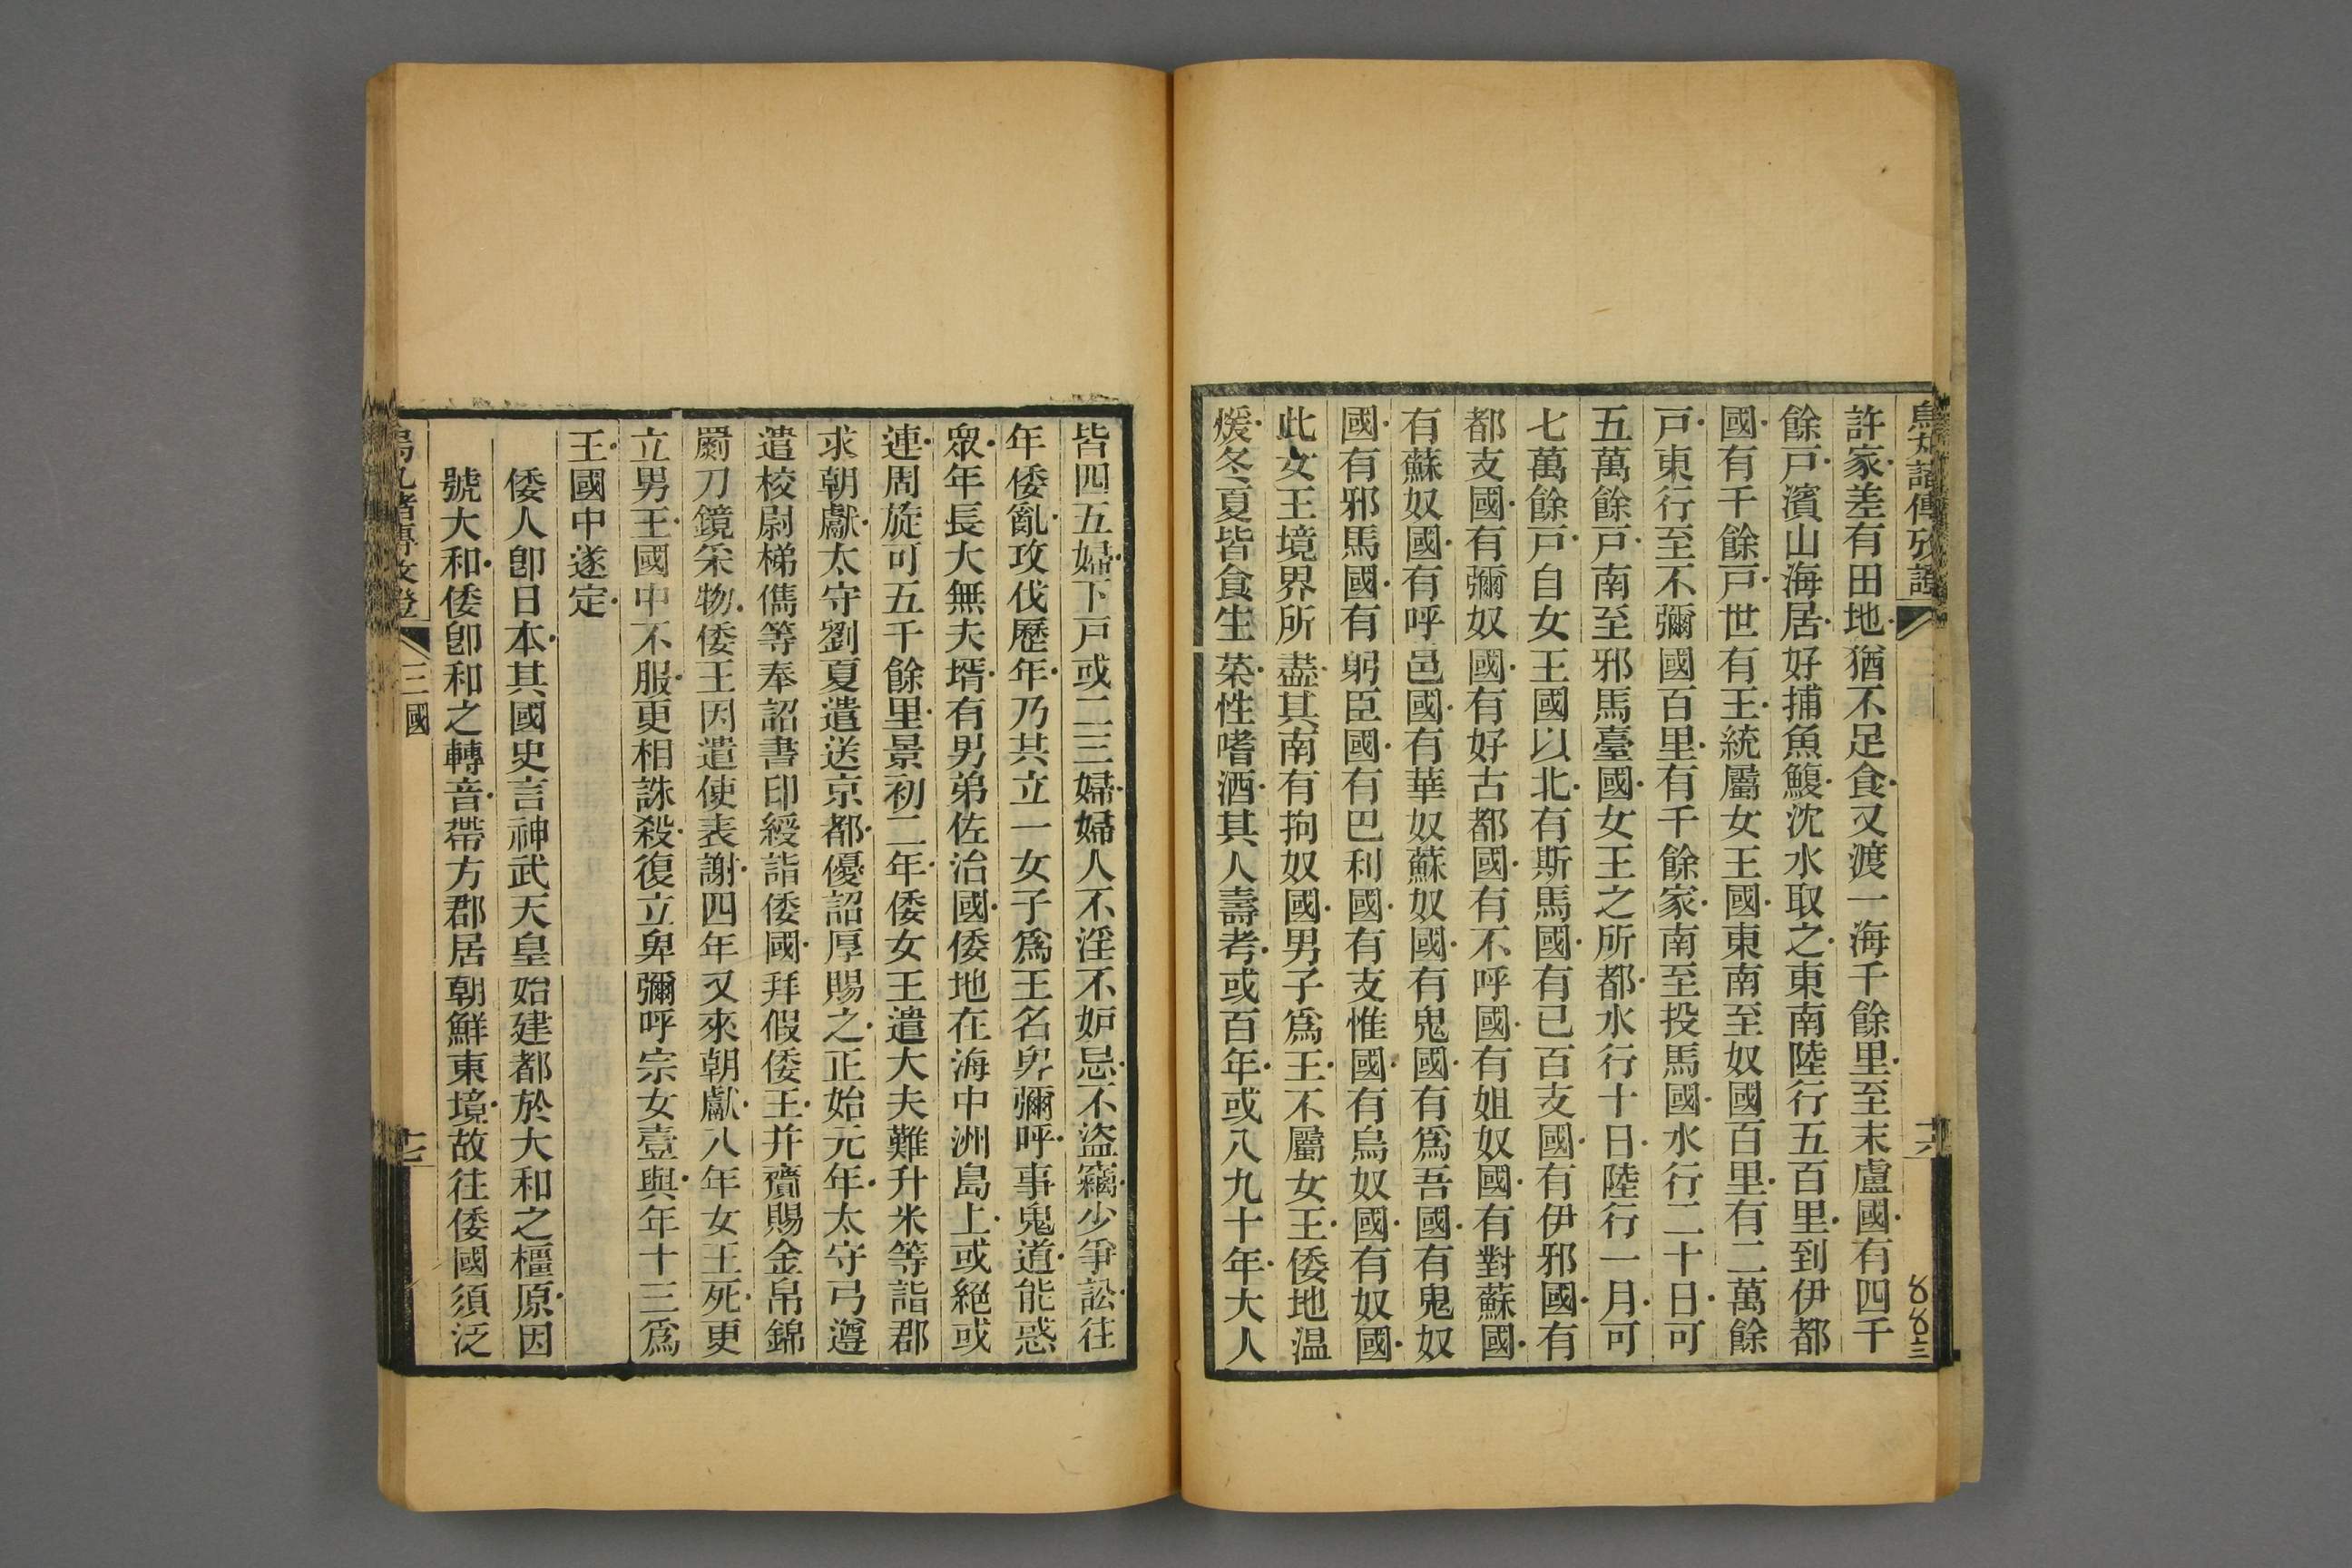 許家差有田地猶不足食又渡一海千餘里至末盧國有四千
餘戸濱山海居好捕魚鰒沈水取之東南陸行五百里到伊都
國有千餘戸世有王統屬女王國東南至奴國百里有二萬餘
戸東行至不彌國百里有千餘家南至投馬國水行二十日可
五萬餘戸南至邪馬臺國女王之所都水行十日陸行一月可
七萬餘戸自女王國以北有斯馬國有已百支國有伊邪國有
都支國有彌奴國有好古都國有不呼國有姐奴國有對蘇國
有蘇奴國有呼邑國有華奴蘇奴國有鬼國有爲吾國有鬼奴
國有邪馬國有躬臣國有巴利國有支惟國有烏奴國有奴國
此女王境界所盡其南有拘奴國男子爲王不屬女王倭地温
煖冬夏皆食生菜性嗜酒其人壽考或百年或八九十年大人
皆四五婦下戸或二三婦婦人不淫不妒忌不盜竊少爭訟往
年倭亂攻伐歷年乃共立一女子爲王名卑彌呼事鬼道能惑
眾年長大無夫壻有男弟佐治國倭地在海中洲島上或絕或
連周旋可五千餘里景初二年倭女王遣大夫難升米等詣郡
求朝獻太守劉夏遣送京都優詔厚賜之正始元年太守弓遵
遣校尉梯儁等奉詔書印綬詣倭國拜假倭王并齎賜金帛錦
罽刀鏡采物倭王因遣使表謝四年又來朝獻八年女王死更
立男王國中不服更相誅殺復立卑彌呼宗女壹與年十三爲
王國中遂定
倭人卽日本其國史言神武天皇始建都於大和之橿原因
號大和倭卽和之轉音帶方郡居朝鮮東境故往倭國須泛
三國